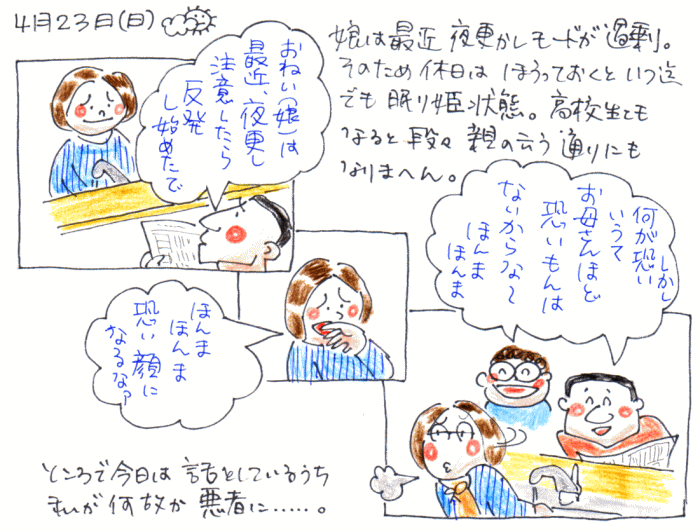 4月23日(日)
娘は最近 夜更かしモードが過剰。
そのため休日は ほうっておくといつ迄
でも眠り姫状態。高校生とも
なると段々親の云う通りにも
なりまへん。
おねい(娘)は
最近、夜更し
注意したら
反発
し始めたで
しかし
何が恐い
いうて
お母さんほど
恐いもんは
ないからな〜
ほんま
ほんま
ほんま
ほんま
恐い顔に
なるな?
ところで今日は 話をしているうち
私が何故か 悪者に……。